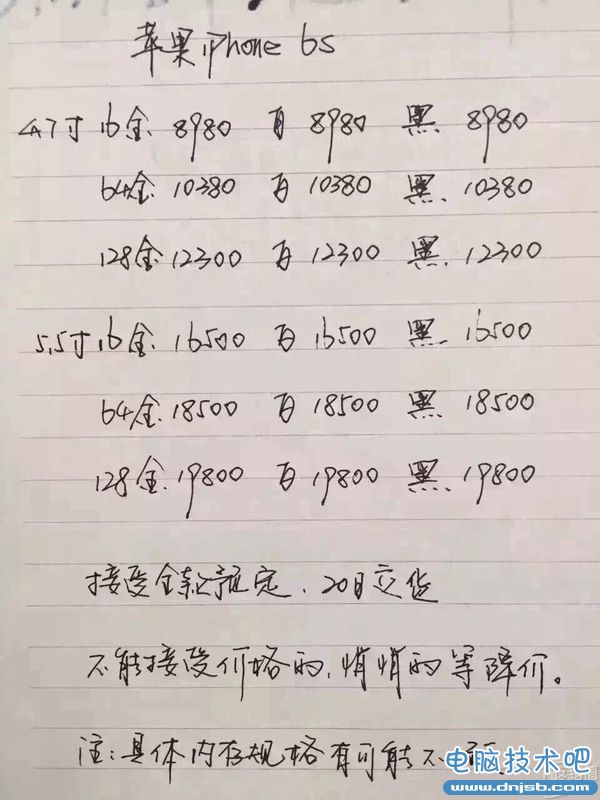 苹果iPhone 6s
4.7寸 16金. 8980 白 8980 黑. 8980
64金. 10380 白 10380 黑. 10380
128金. 12300 白 12300 黑. 12300
5.5寸 16金. 16500 白 16500 黑. 16500
64金. 18500 白 18500 黑. 18500
128金. 19800 白 19800 黑. 19800
接受全款预定. 20日交货
不能接受价格的, 悄悄的等降价。
注: 具体内存规格有可能不
电脑技术吧
www.dnjsb.com